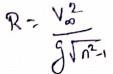 R = V∞² / g√n²-1